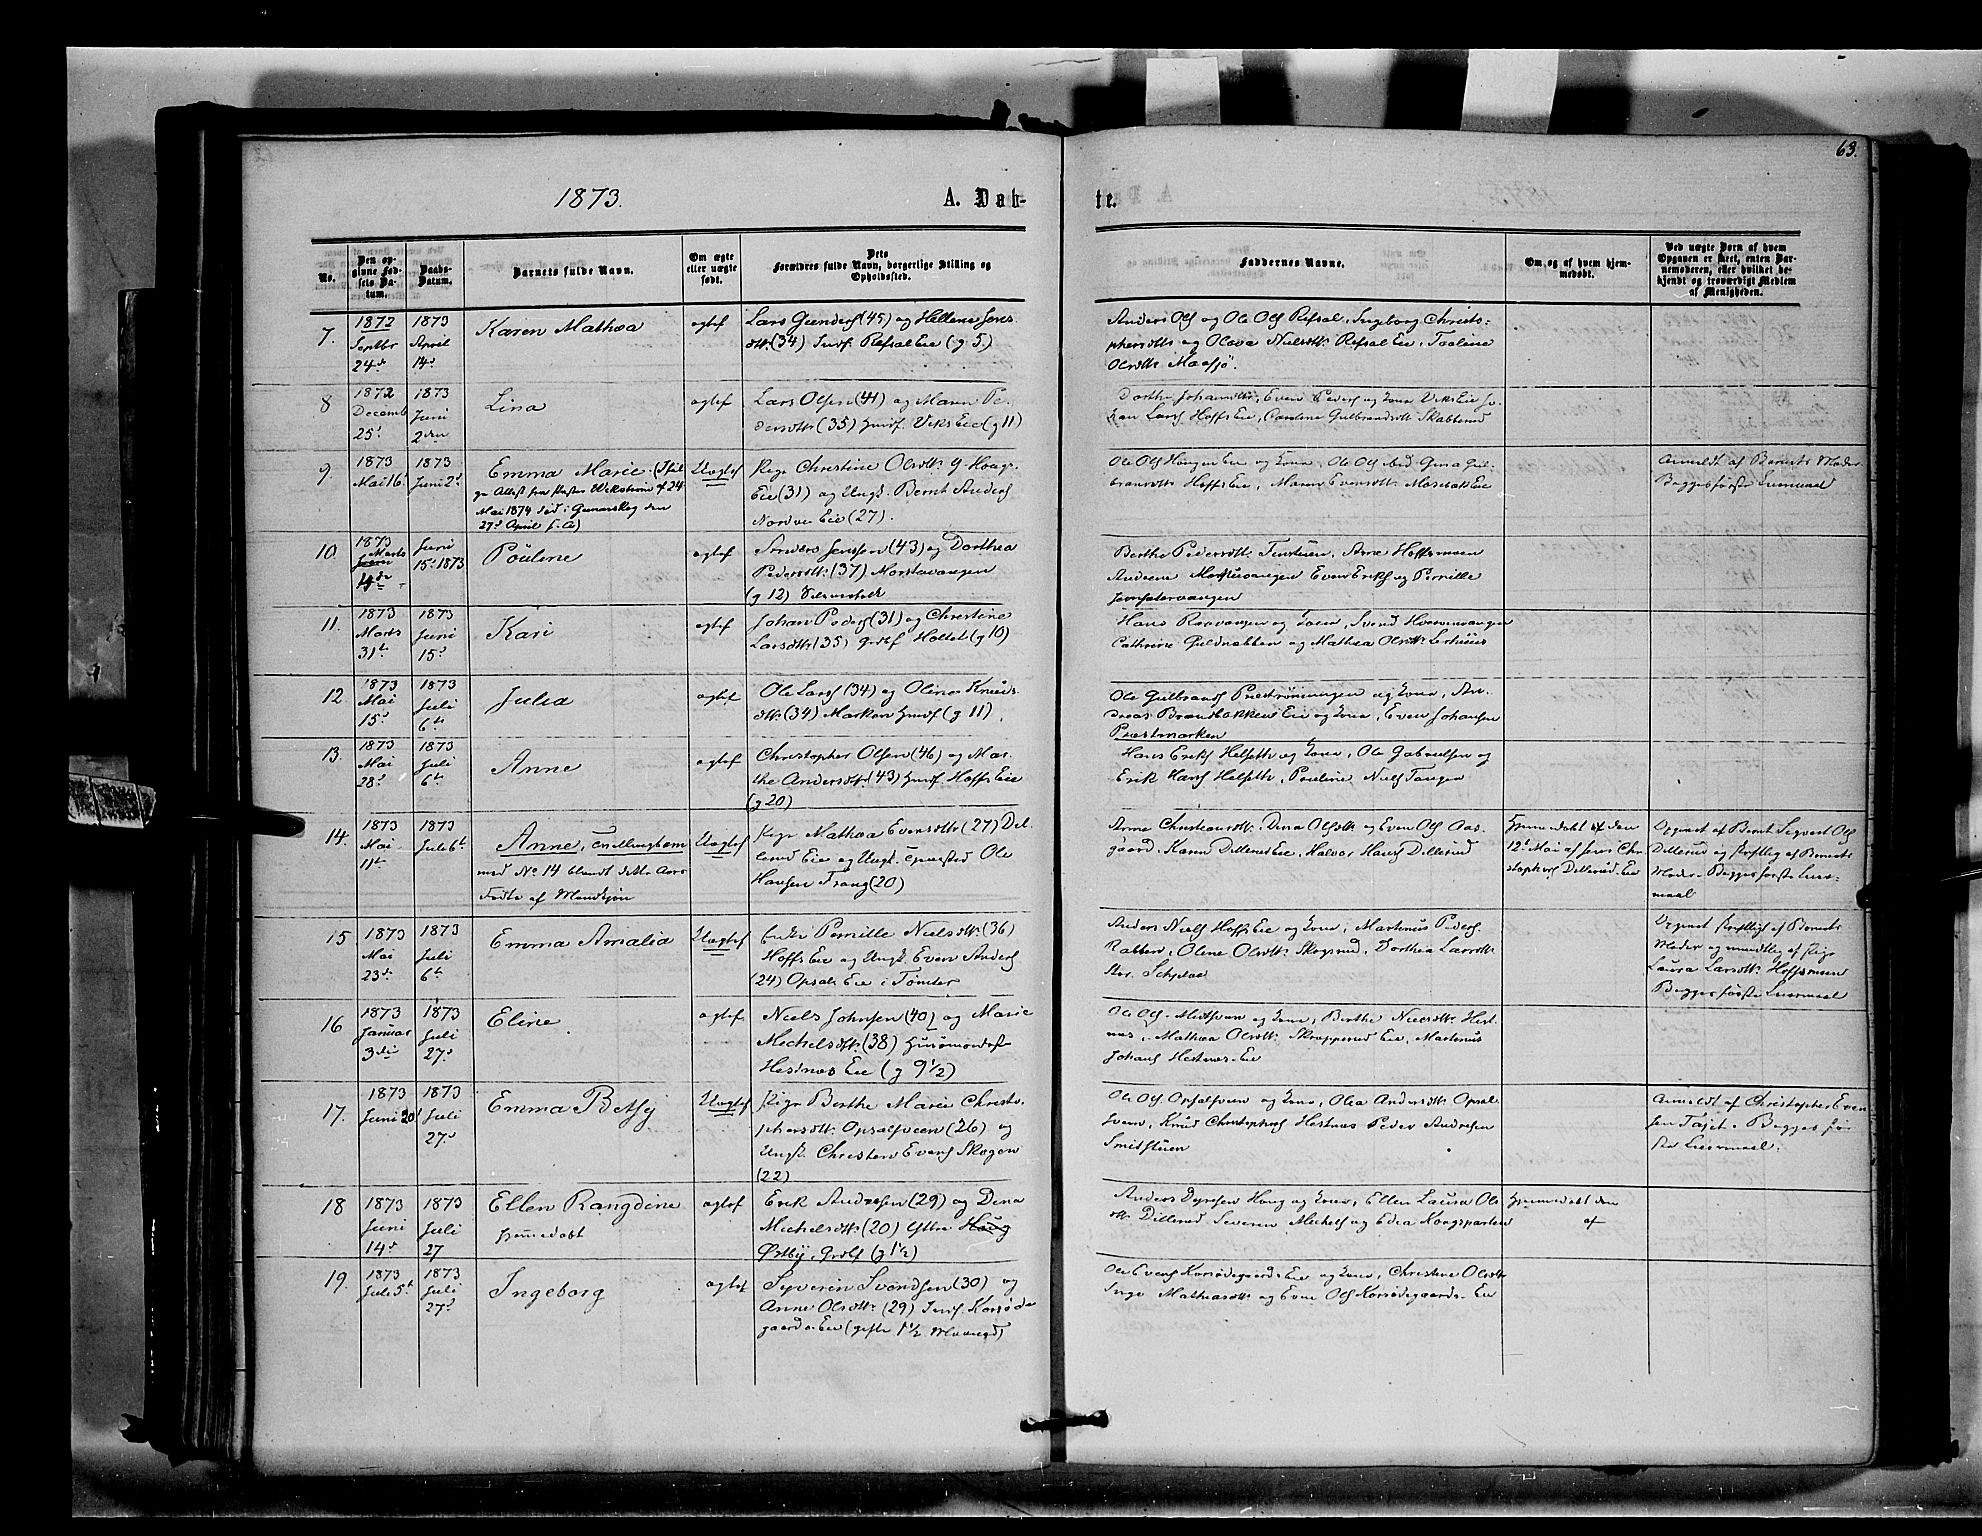 63.
1873.
A. Døb-
te.
No.
Den op-
givne Fød-
sels Da-
tum.
Daabs-
Datum.
Barnets fulde Navn.
Om ægte
eller uægte
født.
Dets
Forældres fulde Navn, borgerlige Stilling og
Opholdssted.
Faddernes Navne.
Om og af hvem hjem-
medøbt.
Ved uægte Børn af hvem
Opgaven er skeet, enten Bar-
nemoderen, eller hvilket be-
kjendt og troværdigt Medlem
af Menigheden.
7.
1872
Septbr
24de
1873
April
14de
Karen Mathea
ægtef
Lars Gunders (45) og Hellene Jens-
dtr. (34) Indf. Refsal Eie (g 5)
Anders Ols og Ole Ols Refsal, Ingeborg Christo-
phersdtr og Olava Nielsdtr. Refsal Eie,
Olsdtr Maasjø.
8
1872
Decemb
25d
1873
Juni
2den
Lina
ægtef
Lars Olsen (41) og Maren Pe-
dersdtr. (35) Husf. Viks Eie (g 11)
Dorthe Johannsdtr, Even Peders og Kone Viks Eie Jo-
han Lars Hoffs Eie, Caroline Gulbrandsdtr Skabberud
9.
1873
Mai 16.
1873
Juni 2d
Emma Marie (Iføl-
ge Attest fra Pastor Wekstrøm af 24
Mai 1874 død i Gunarskog den
27d April s. A)
Uægtef
Pige Christine Olsdtr. g Hougs-
Eie (31) og Ungk. Bernt Anders
Nordre Eie (27).
Ole Ols Hougen Eie og Kone, Ole Ols ibid. Gina Gul-
brandsdtr Hoffs Eie, Maren Evensdtr. Eie
Anmeldt af Barnets Moder
Begges første Leiermaal
10.
1873
Marts
4de
Juni
15d 1873
Pouline
ægtef
Anders Jensen (43) og Dorthea
Pedersdtr. (37) Morstavangen
(g 12)
Berthe Pedersdtr. Arne Hoffsmoen
Andrine Even Eriks og Pernille
11.
1873
Marts
31te
1873
Juni
15d
Kari
ægtef
Johan Peders (31) og Christine
Larsdtr (35) Holtet (g 10)
Hans og Kone, Svend
Cathrine og Mathea Olsdtr.
12
1873
Mai
15d
1873
Juli
6te
Julia
ægtef
Ole Lars (34) og Oline Knuds-
dtr. (34) Marken Husf (g 11).
Ole Gulbrands og Kone, An-
dreas Brandbakken Eie og Kone, Even Johansen
Præstmarken
13.
1873
Mai
28d
1873
Juli
6te
Anne
ægtef
Christopher Olsen (46) og Mar-
the Andersdtr. (43) Husf Hoffs Eie
(g 20)
Hans Eriks Helseth og Kone, Ole Gabrielsen og
Erik Hans Helseth, Pouline Niels Tangen
14.
1873
Mai
11te
1873
Juli 6te
Anne, Tvillingbarn
med No 14 blandt dette Aars
Fødte af Mandkjøn
Uægtef
Pige Mathea Evensdtr. (27) Dil-
lerud Eie og Ungk. Ole
Hansen Trang (20)
Anne Christiansdtr. Dina Olsdtr og Even Ols Aas-
gaard, Karen Dillerud Eie, Halvor Hans Dillerud
Hjemmedøbt af den
12d Mai af Jens Chr-
istophers Dillerud Eie
Opgivet af Bernt Sigvart Ols
Dillerud og skriftlig af Barnets
Moder. Begges første Leier-
maal
15
1873
Mai
23de
1873
Juli
6te
Emma Amalia
Uægtef
Enke Pernille Nielsdtr. (36)
Hoffs Eie og Ungk. Even Anders
(24) Opsal Eie i Tomter
Anders Niels Hoffs Eie og Kone, Martinus Peders
Olene Olsdtr. Skogsrud, Dorthea Larsdtr
Opgivet skriftlig af Barnets
Moder og mundtlig af Pige
Laura Larsdtr. Hoffsmoen
Begges første Leiermaal
16
1873
Januar
3die
1873
Juli
27d
Eline.
ægtef.
Niels Johnsen (40) og Marie
Mechelsdtr. (38) Huusmandsf
Hestnæs Eie (g 9 1/2)
Ole Ols og Kone, Berthe Nielsdtr. Hest-
næs, Mathea Olsdtr. Skrapperud Eie, Martinus
Johans Hestnæs-Eie
17.
1873
Juni 20d
1873
Juli
27d
Emma Betsy
Uægtef
Pige Berthe Marie Christo-
phersdtr. Opsalsveen (26) og
Ungk. Christen Evens Skogen
(22)
Ole Ols Opsalsveen og Kone, Olea Andersdtr. Opsal-
sveen, Knud Christophers Hestnæs Peder Andersen
Smitstuen
Anmeldt af Christopher Even-
sen Taset. Begges før-
ste Leiermaal.
18
1873
Juni
14d
1873
Juli
27
Ellen Rangdine
hjemmedøbt
ægtef
Erik Andersen (29) og Dina
Mechelsdtr. (20) Ytre Haug
Østby, Grdf (g 1 1/2)
Anders Haug og Kone, Ellen Laura Ols-
dtr. Dillerud Severin Michels og Edea
Hjemmedøbt den
af
19.
1873
Juli 5te
1873
Juli
27d
Ingeborg
ægtef
Syverin Svendsen (30) og
Anne Olsdtr. (29) Indf. Korsøde-
gaards Eie (gifte 1 1/2 Maaned)
Ole Evens Korsødegaards Eie og Kone, Christine Olsdtr
Inge Mathiasdtr. og Even Ols Korsødegaards Eie